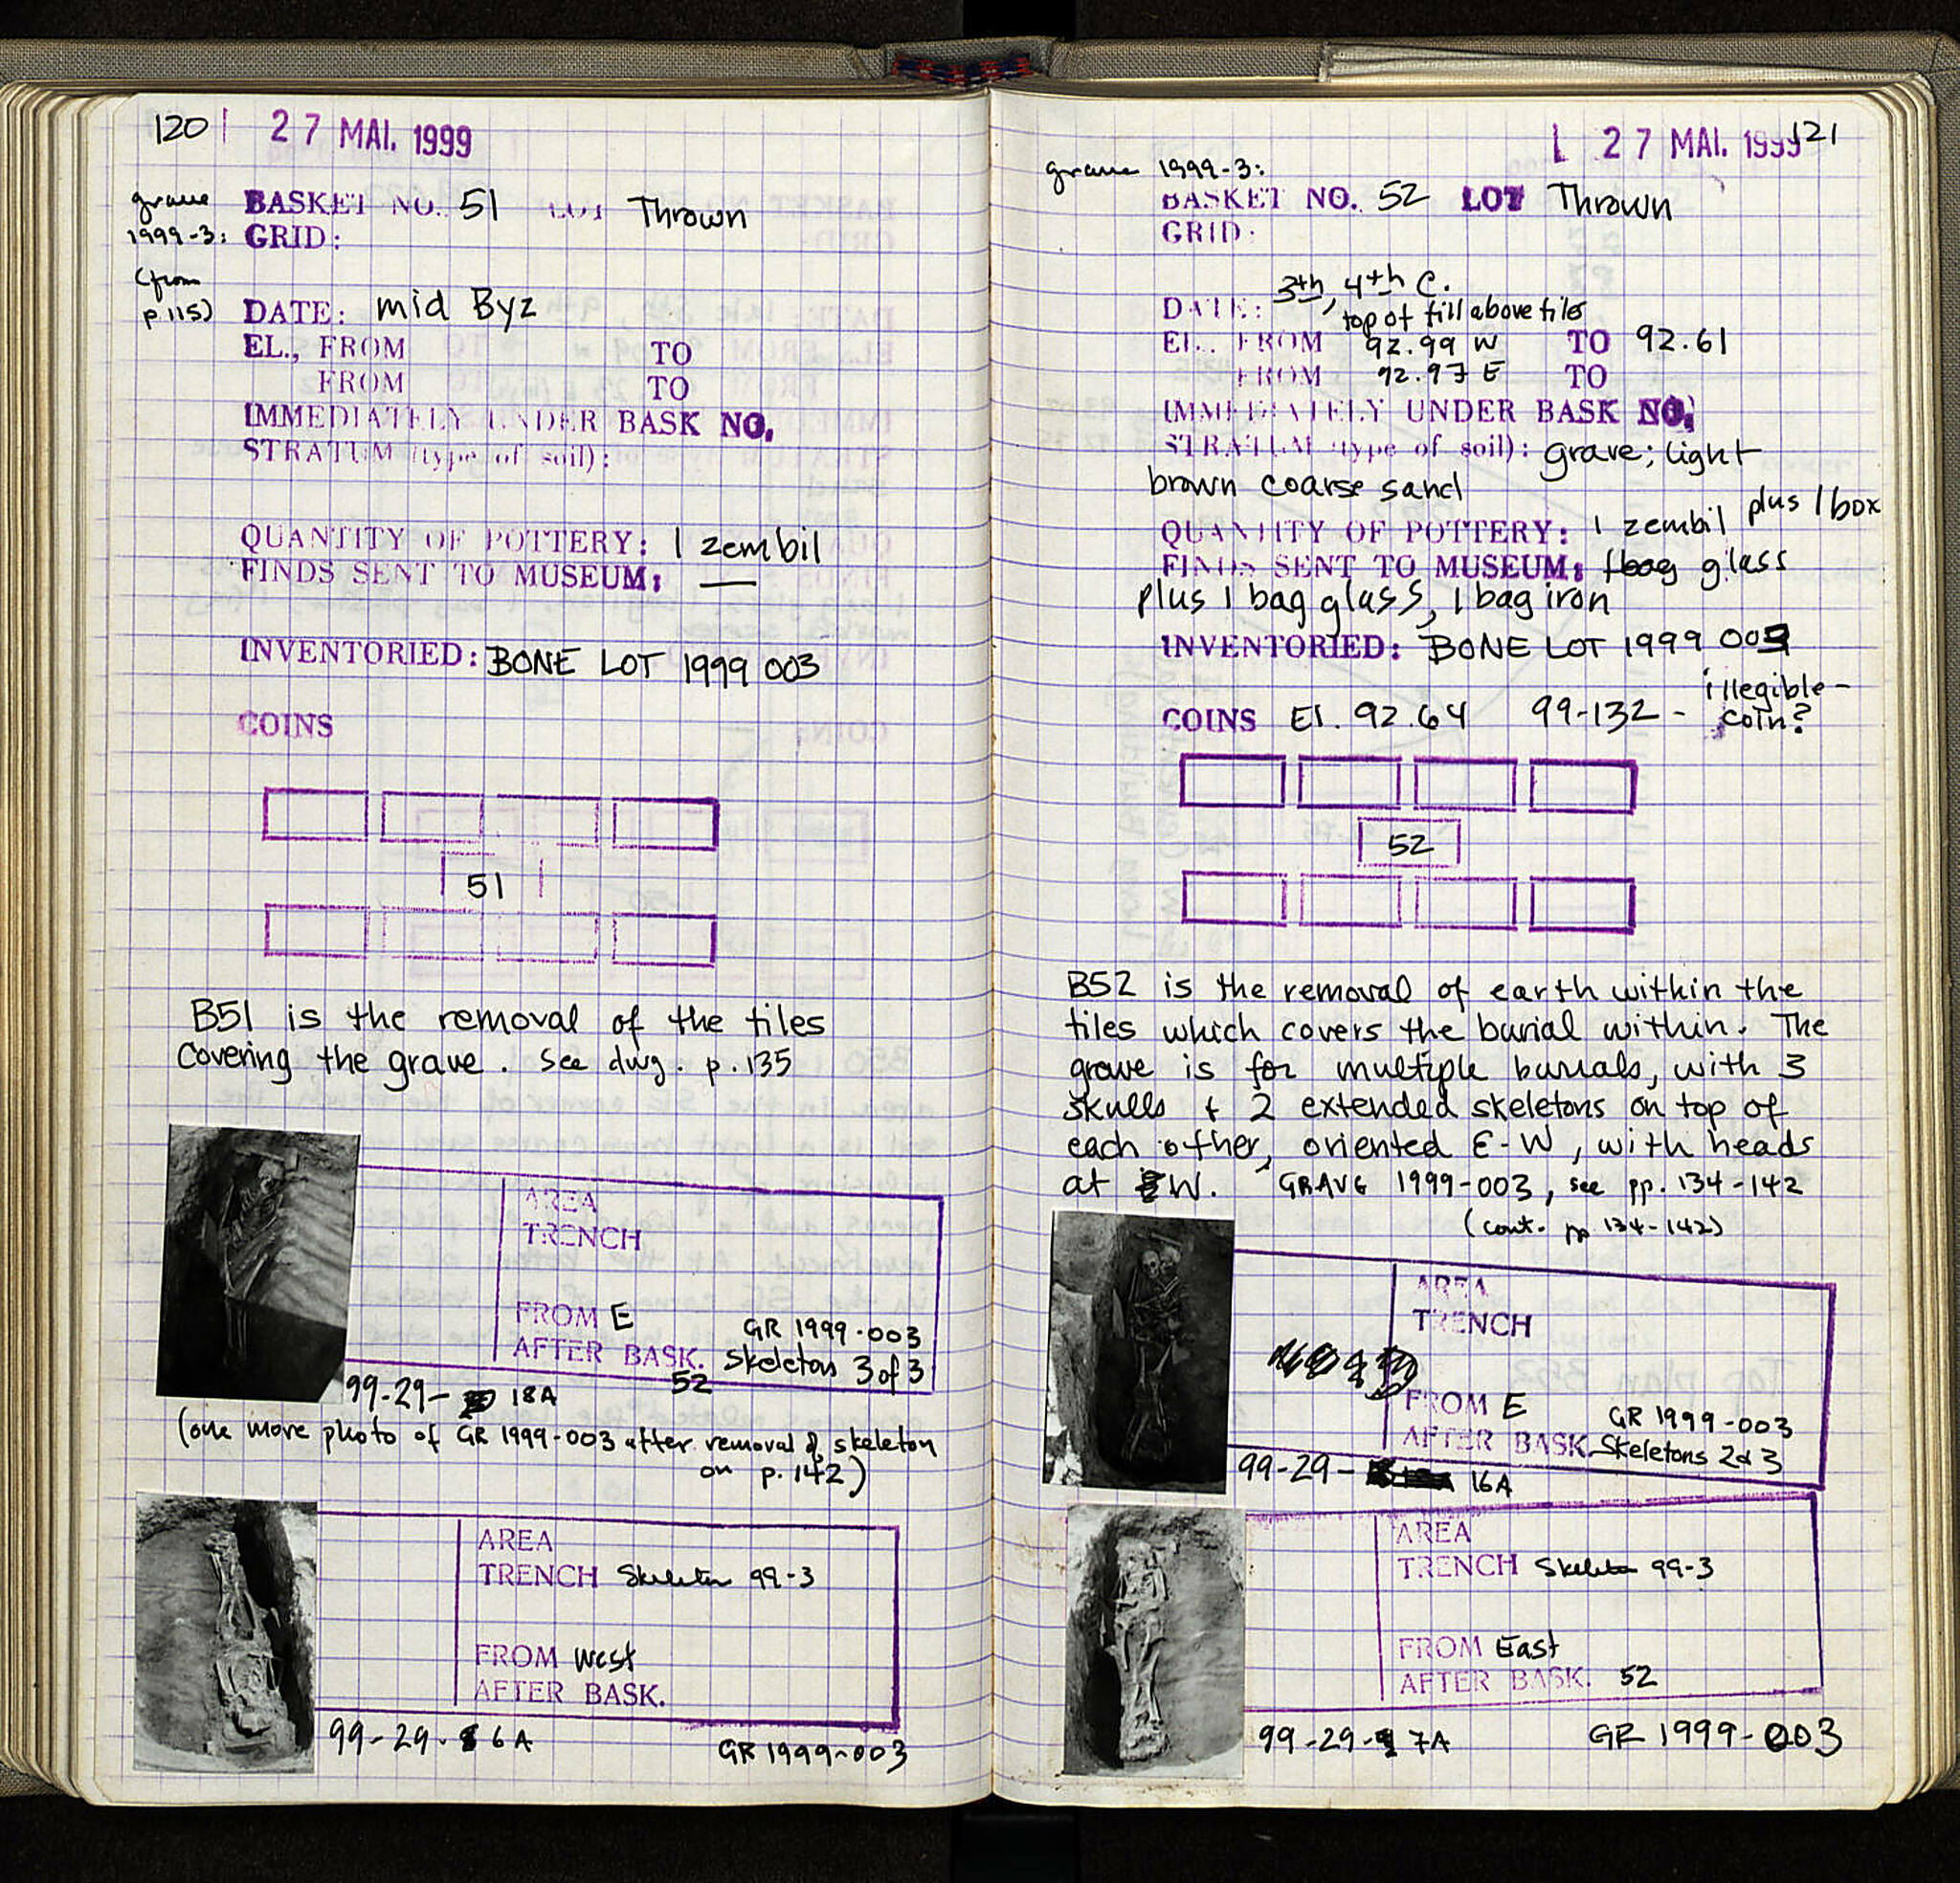 120 27 MAI. 1999
grave BASKET NO. 51 LOT Thrown
1999-3: GRID:
(from
p.115) DATE: mid Byz
EL., FROM TO
FROM TO
IMMEDIATELY UNDER BASK NO.
STRATUM (type of soil):
QUANTITY OF POTTERY: 1 zembil
FINDS SENT TO MUSEUM: —
INVENTORIED: BONE LOT 1999 003
COINS
51
B51 is the removal of the tiles
covering the grave. See dwg. p.135
AREA
TRENCH
FROM E GR 1999-003
AFTER BASK. Skeleton 3 of 3
52
99-29- 18A
(one more photo of GR 1999-003 after removal of skeleton
on p.142)
AREA
TRENCH Skeleton 99-3
FROM West
AFTER BASK.
99-29- 6A GR 1999-003
27 MAI. 1999 121
grave 1999-3:
BASKET NO. 52 LOT Thrown
GRID:
3th, 4th C.
DATE: top of fill above tile
EL., FROM 92.99 W TO 92.61
FROM 92.97 E TO
IMMEDIATELY UNDER BASK NO.
STRATUM (type of soil): grave; light
brown coarse sand
QUANTITY OF POTTERY: 1 zembil plus 1 box
FINDS SENT TO MUSEUM: 1 bag glass
plus 1 bag glass, 1 bag iron
INVENTORIED: BONE LOT 1999 003
COINS El. 92.64 99-132 - illegible-
coin?
52
B52 is the removal of earth within the
tiles which covers the burial within. The
grave is for multiple burials, with 3
skulls + 2 extended skeletons on top of
each other, oriented E-W, with heads
at W. GRAVE 1999-003, see pp. 134-142
(cont. pp 134-142)
AREA
TRENCH
FROM E GR 1999-003
AFTER BASK. Skeletons 2 & 3
99-29- 16A
AREA
TRENCH Skeleton 99-3
FROM East
AFTER BASK. 52
99-29- 7A GR 1999-003